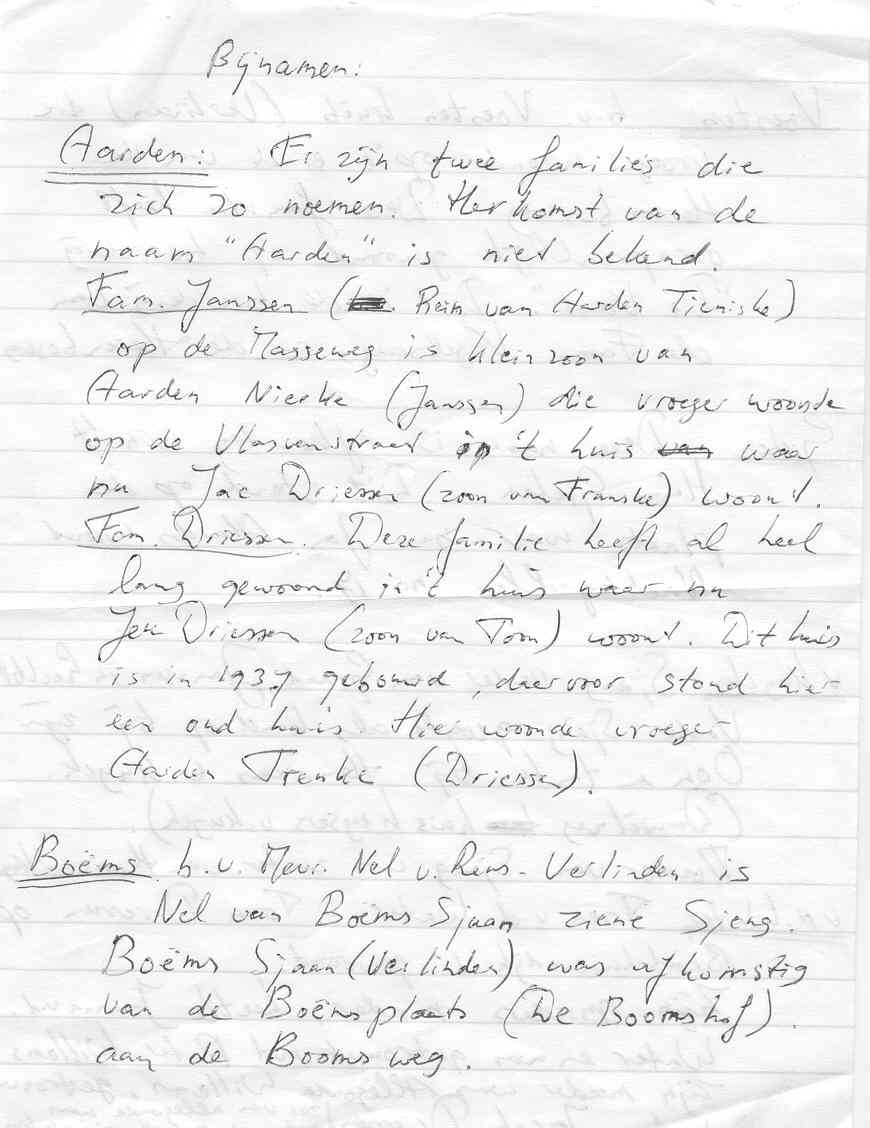 Bijnamen:
Aarden: Er zijn twee families die
zich zo noemen. Herkomst van de
naam "Aarden" is niet bekend.
Fam. Janssen (Rein van Aarden Tieniske)
op de Masseweg is kleinzoon van
Aarden Nieske (Janssen) die vroeger woonde
op de Vlasvenstraat in 't huis van waar
nu Jac Driessen (zoon van Franske) woont.
Fam. Driessen. Deze familie heeft al heel
lang gewoond in 't huis waar nu
Jeu Driessen (zoon van Toon) woont. Dit huis
is in 1937 gebouwd, daarvoor stond hier
een oud huis. Hier woonde vroeger
Aarden Trenke (Driessen).
Boëms b.v. Mevr. Nel v. Rens-Verlinden is
Nel van Boëms Sjaan ziene Sjeng.
Boëms Sjaan (Verlinden) was afkomstig
van de Boëmsplaats (De Boomshof).
aan de Boomsweg.